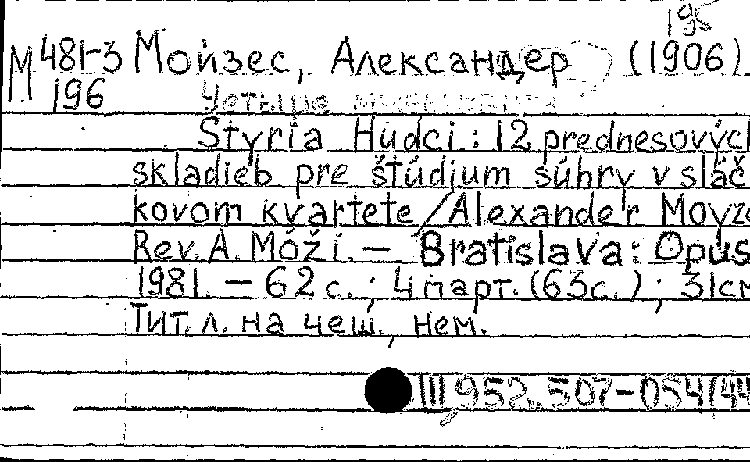 195
М 481-3 Мойзес, Александер (1906)
196 Четыре музыканта
Štyria Hudci : 12 prednesových
skladieb pre štúdium súhry v sláč
kovom kvartete / Alexander Moyze
Rev. A. Móži. — Bratislava : Opus
1981. — 62 с. ; 4 парт. (63 с.) ; 31 см
Тит. л. на чеш., нем.
III 952. 507-054(44